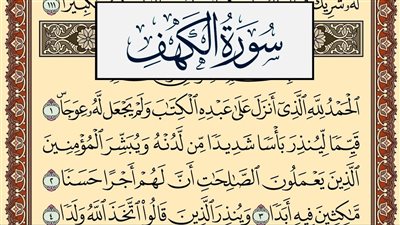 لَّهُۥ شَرِيكٌ
تَكْبِيرًۢا ١١١
سُورَةُ الكَهْفِ
ٱلْحَمْدُ لِلَّهِ ٱلَّذِىٓ أَنزَلَ عَلَىٰ عَبْدِهِ ٱلْكِتَـٰبَ وَلَمْ يَجْعَل لَّهُۥ عِوَجَاۜ ١
قَيِّمًا لِّيُنذِرَ بَأْسًا شَدِيدًا مِّن لَّدُنْهُ وَيُبَشِّرَ ٱلْمُؤْمِنِينَ
ٱلَّذِينَ يَعْمَلُونَ ٱلصَّـٰلِحَـٰتِ أَنَّ لَهُمْ أَجْرًا حَسَنًا ٢
مَّـٰكِثِينَ فِيهِ أَبَدًا ٣ وَيُنذِرَ ٱلَّذِينَ قَالُوا۟ ٱتَّخَذَ ٱللَّهُ وَلَدًا ٤